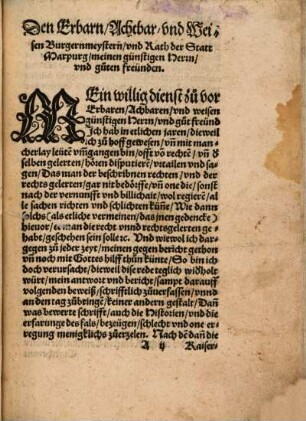 Den Erbarn/Achtbar/vnd Wei⸗
sen Burgernmeystern/vnd Rath der Statt
Marpurg/meinen günstigen Herrn/
vnd gůten freünden.
MEin willig dienst zů vor
Erbaren/Achbaren/vnd weisen
günstigen Herrn/vnd gůt freünd
Ich hab in etlichen jaren/dieweil
ich zů hoff gewesen/vn̄ mit man⸗
cherlay leüte vm̄gangen bin/offt võ rechtē/ vn̄ d
selben gelerten/hören disputiern/vrtailen vnd sa⸗
gen/Das man der beschribnen rechten/vnd der
rechts gelerten/gar nit bedörffe/vn̄ one die/sonst
nach der vernunfft vnd billichait/wol regierē/al
le sachen richten vnd schlichten küñe/Wie dann
solichs(als etliche vermeinen/das jnen gedencke)
hieuor/ee man die recht vnnd rechtsgelerten ge⸗
habt/geschehen sein solle ꝛc. Vnd wiewol ich dar⸗
gegen zů jeder zeyt/meinen gegen bericht gethon
vn̄ noch mit Gottes hilff thůn künte/So bin ich
doch verursacht/dieweil dise rede teglich widholt
würt/mein antwort vnd bericht/sampt darauff
volgenden beweiß/schrifftlich zůuerfassen/vnnd
an den tag zůbringē/keiner andern gestalt/Dañ
was bewerte schrifft/auch die Historien/vnd die
erfarunge des fals/bezeügen/schlecht vnd one er⸗
regung menigklichs zůerzelen. Nach dē dañ die
A ij Kaiser⸗